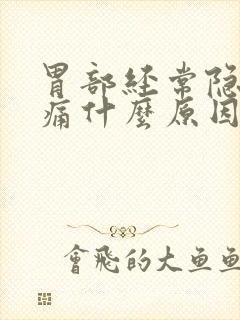 胃部经常隐
痛什麼原因
會飛的大鱼鱼